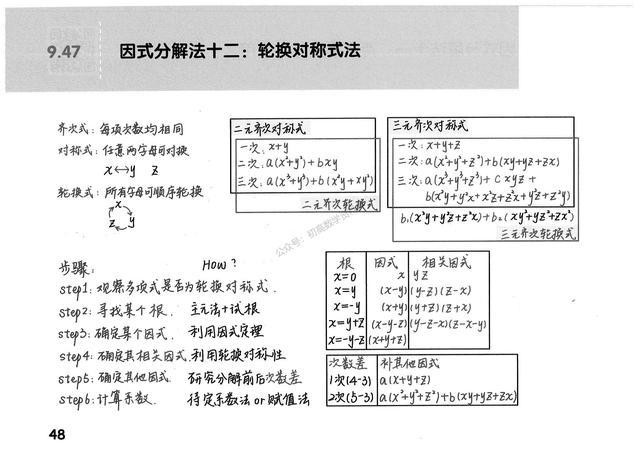 9.47 因式分解法十二：轮换对称式法
齐次式：每项次数均相同
对称式：任意两字母可对换
x↔y z
轮换式：所有字母可顺序轮换
x
z y
二元齐次对称式
一次：x+y
二次：a(x²+y²)+bxy
三次：a(x³+y³)+b(x²y+xy²)
二元齐次轮换式
三元齐次对称式
一次：x+y+z
二次：a(x²+y²+z²)+b(xy+yz+zx)
三次：a(x³+y³+z³)+cxyz+
b(x²y+y²x+x²z+z²x+y²z+z²y)
b₁(x²y+y²z+z²x)+b₂(xy²+yz²+zx²)
三元齐次轮换式
公众号：初高教学
步骤： HOW?
step1：观察多项式是否为轮换对称式.
step2：寻找某个根. 主元法+试根
step3：确定某个因式. 利用因式定理
step4：确定其相关因式. 利用轮换对称性
step5：确定其他因式. 研究分解前后次数差
step6：计算系数. 待定系数法or赋值法
根 因式 相关因式
x=0 x yz
x=y (x-y) (y-z)(z-x)
x=-y (x+y) (y+z)(z+x)
x=y+z (x-y-z) (y-z-x)(z-x-y)
x=-y-z (x+y+z)
次数差 补其他因式
1次(4-3) a(x+y+z)
2次(5-3) a(x²+y²+z²)+b(xy+yz+zx)
48